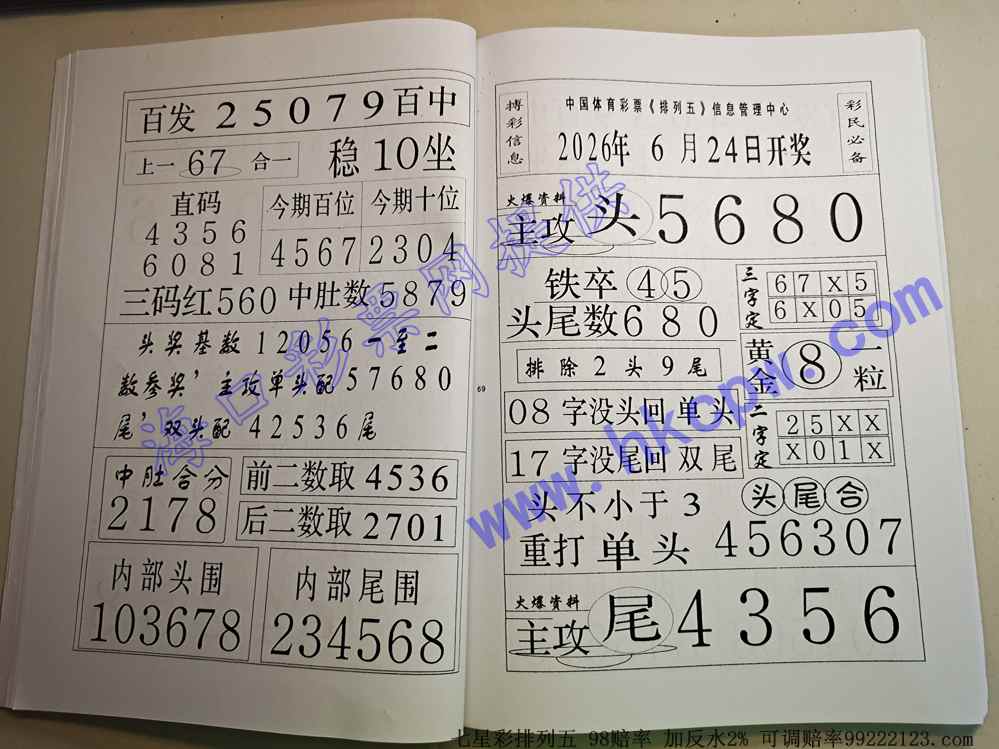 百发 25079 百中
上一 67 合一 稳 10坐
直码
4356
6081
今期百位 今期十位
4567 2304
三码红 560 中肚数 5879
头奖基数12056一至二
数参奖’主攻单头配57680
尾’双头配42536尾
中肚合分
2178
前二数取 4536
后二数取 2701
内部头围
103678
内部尾围
234568
69
搏彩信息
中国体育彩票《排列五》信息管理中心
2026年 6 月 24日开奖
彩民必备
火爆资料
主攻 头 5680
铁卒 45
头尾数680
排除2头9尾
三字定
67X5
6X05
黄金 8 一粒
08 字没头回 单头
17 字没尾回 双尾
二字定
25XX
X01X
头不小于3
头尾合
重打 单头 456307
火爆资料
主攻 尾 4356
海口彩票网提供
www.hkopw.com
七星彩排列五 98赔率 加反水2% 可调赔率99222123.com